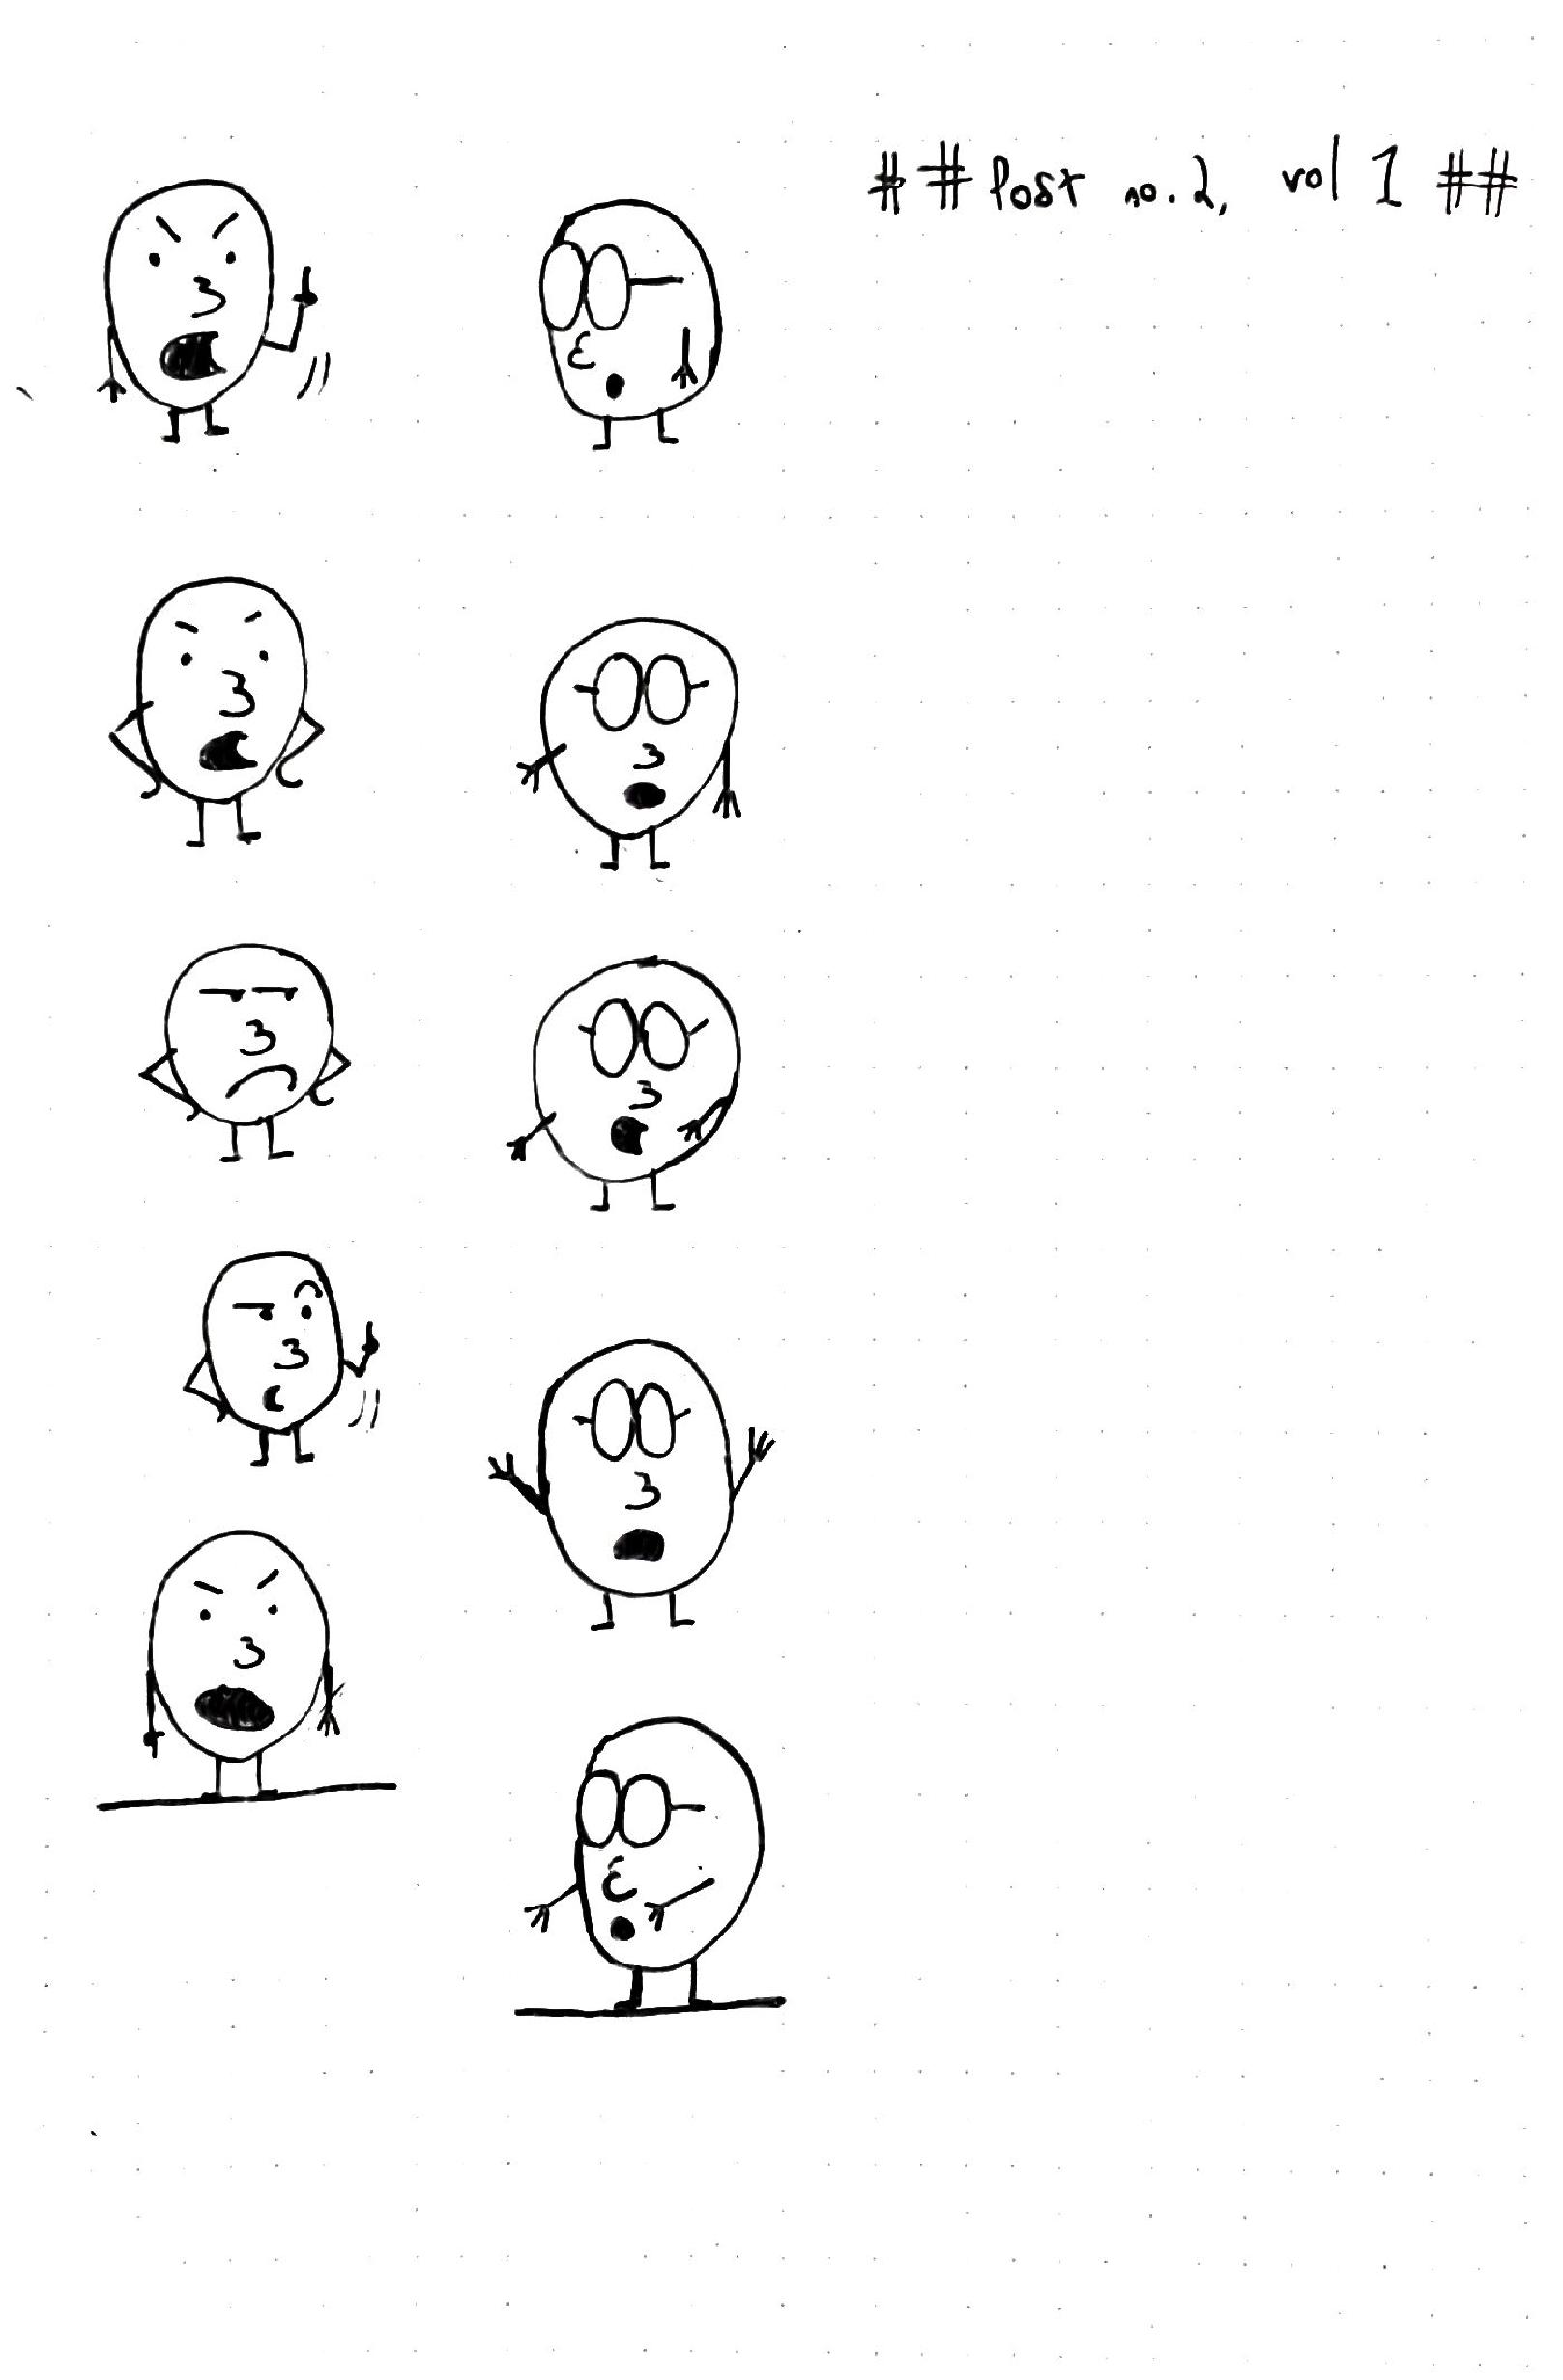 ##Post no. 2, vol 1 ##